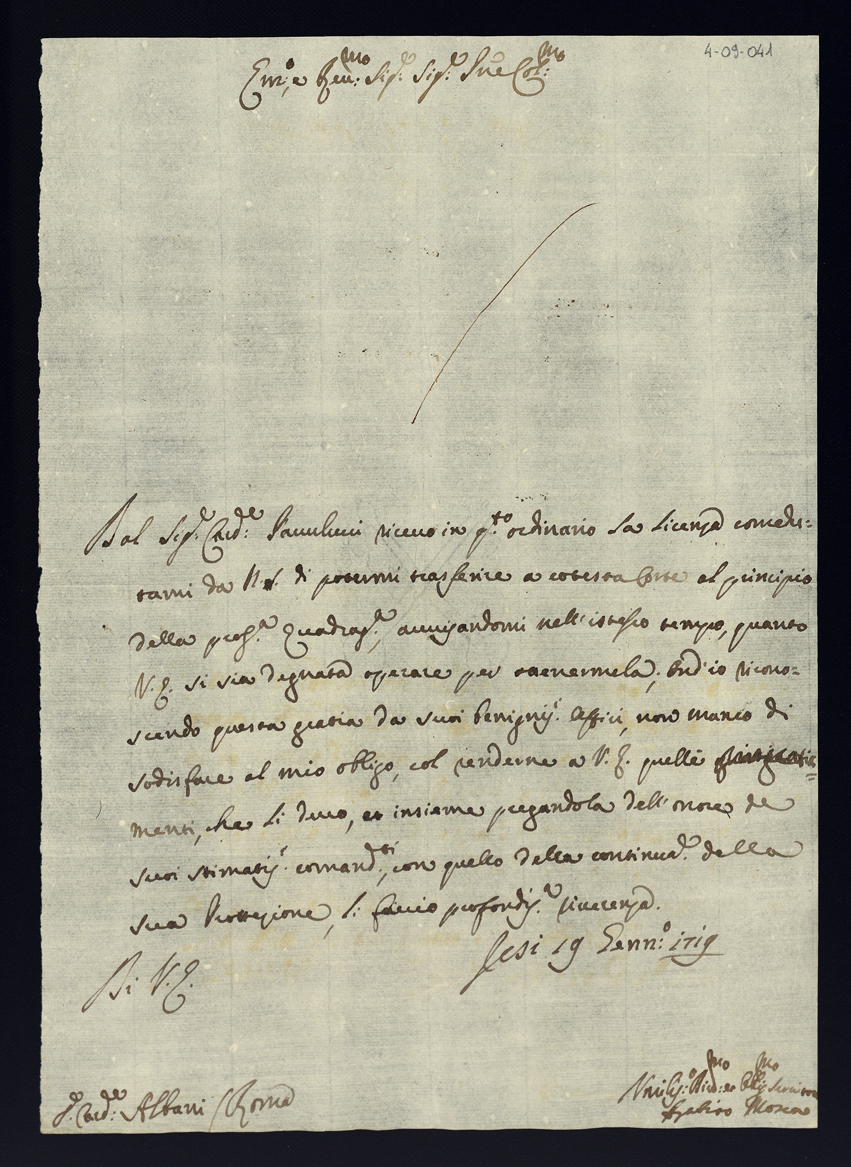 4-09-041
Em:o, e Reu:mo Sig:r Sig:r Pne Col:mo
Dal Sig:r Card:le Paulucci riceuo in q:to ordinario la licenza concedu=
tami da N. S. di potermi trasferire a cotesta Corte al principio
della pross:a Quadrag:a, auuisandomi nell'istesso tempo, quanto
V. E. si sia degnata operare per ottenermela; ond'io ricono=
scendo questa gratia da suoi benigniss:i Officj, non manco di
sodisfare al mio obligo, col renderne a V. E. quelle
menti, che li deuo, et insieme pregandola dell'onore de
suoi stimatiss:i comand:ti, con quello della continuaz:e della
sua Protezione, li faccio profondiss:a riuerenza.
Jesi 19 Genn:o 1719
Di V. E.
S:r Card:le Albani / Roma
Vmiliss:o Diu:mo et Obl:mo Seruitore
Agabito Mosca